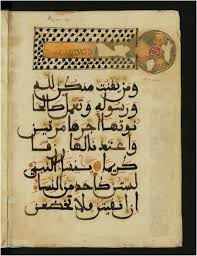 ومن يقنت منكن لله
ورسوله وتعمل صالحا
نوتها اجرها مرتين
واعتدنا لها رزقا
كريما ينساء النبي
لستن كاحد من النساء
ان اتقيتن فلا تخضعن